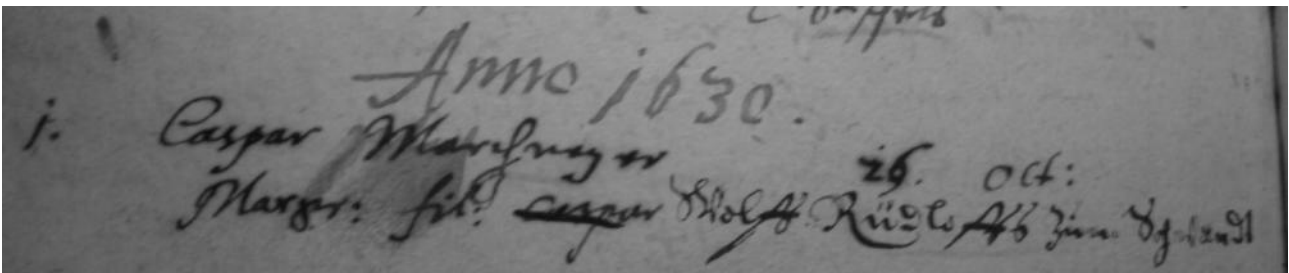 Anno 1630.
j. Caspar Marchmeyer
26. Oct:
Marger: fil: Caspar Wolff Rüdloffs zum Schwandt